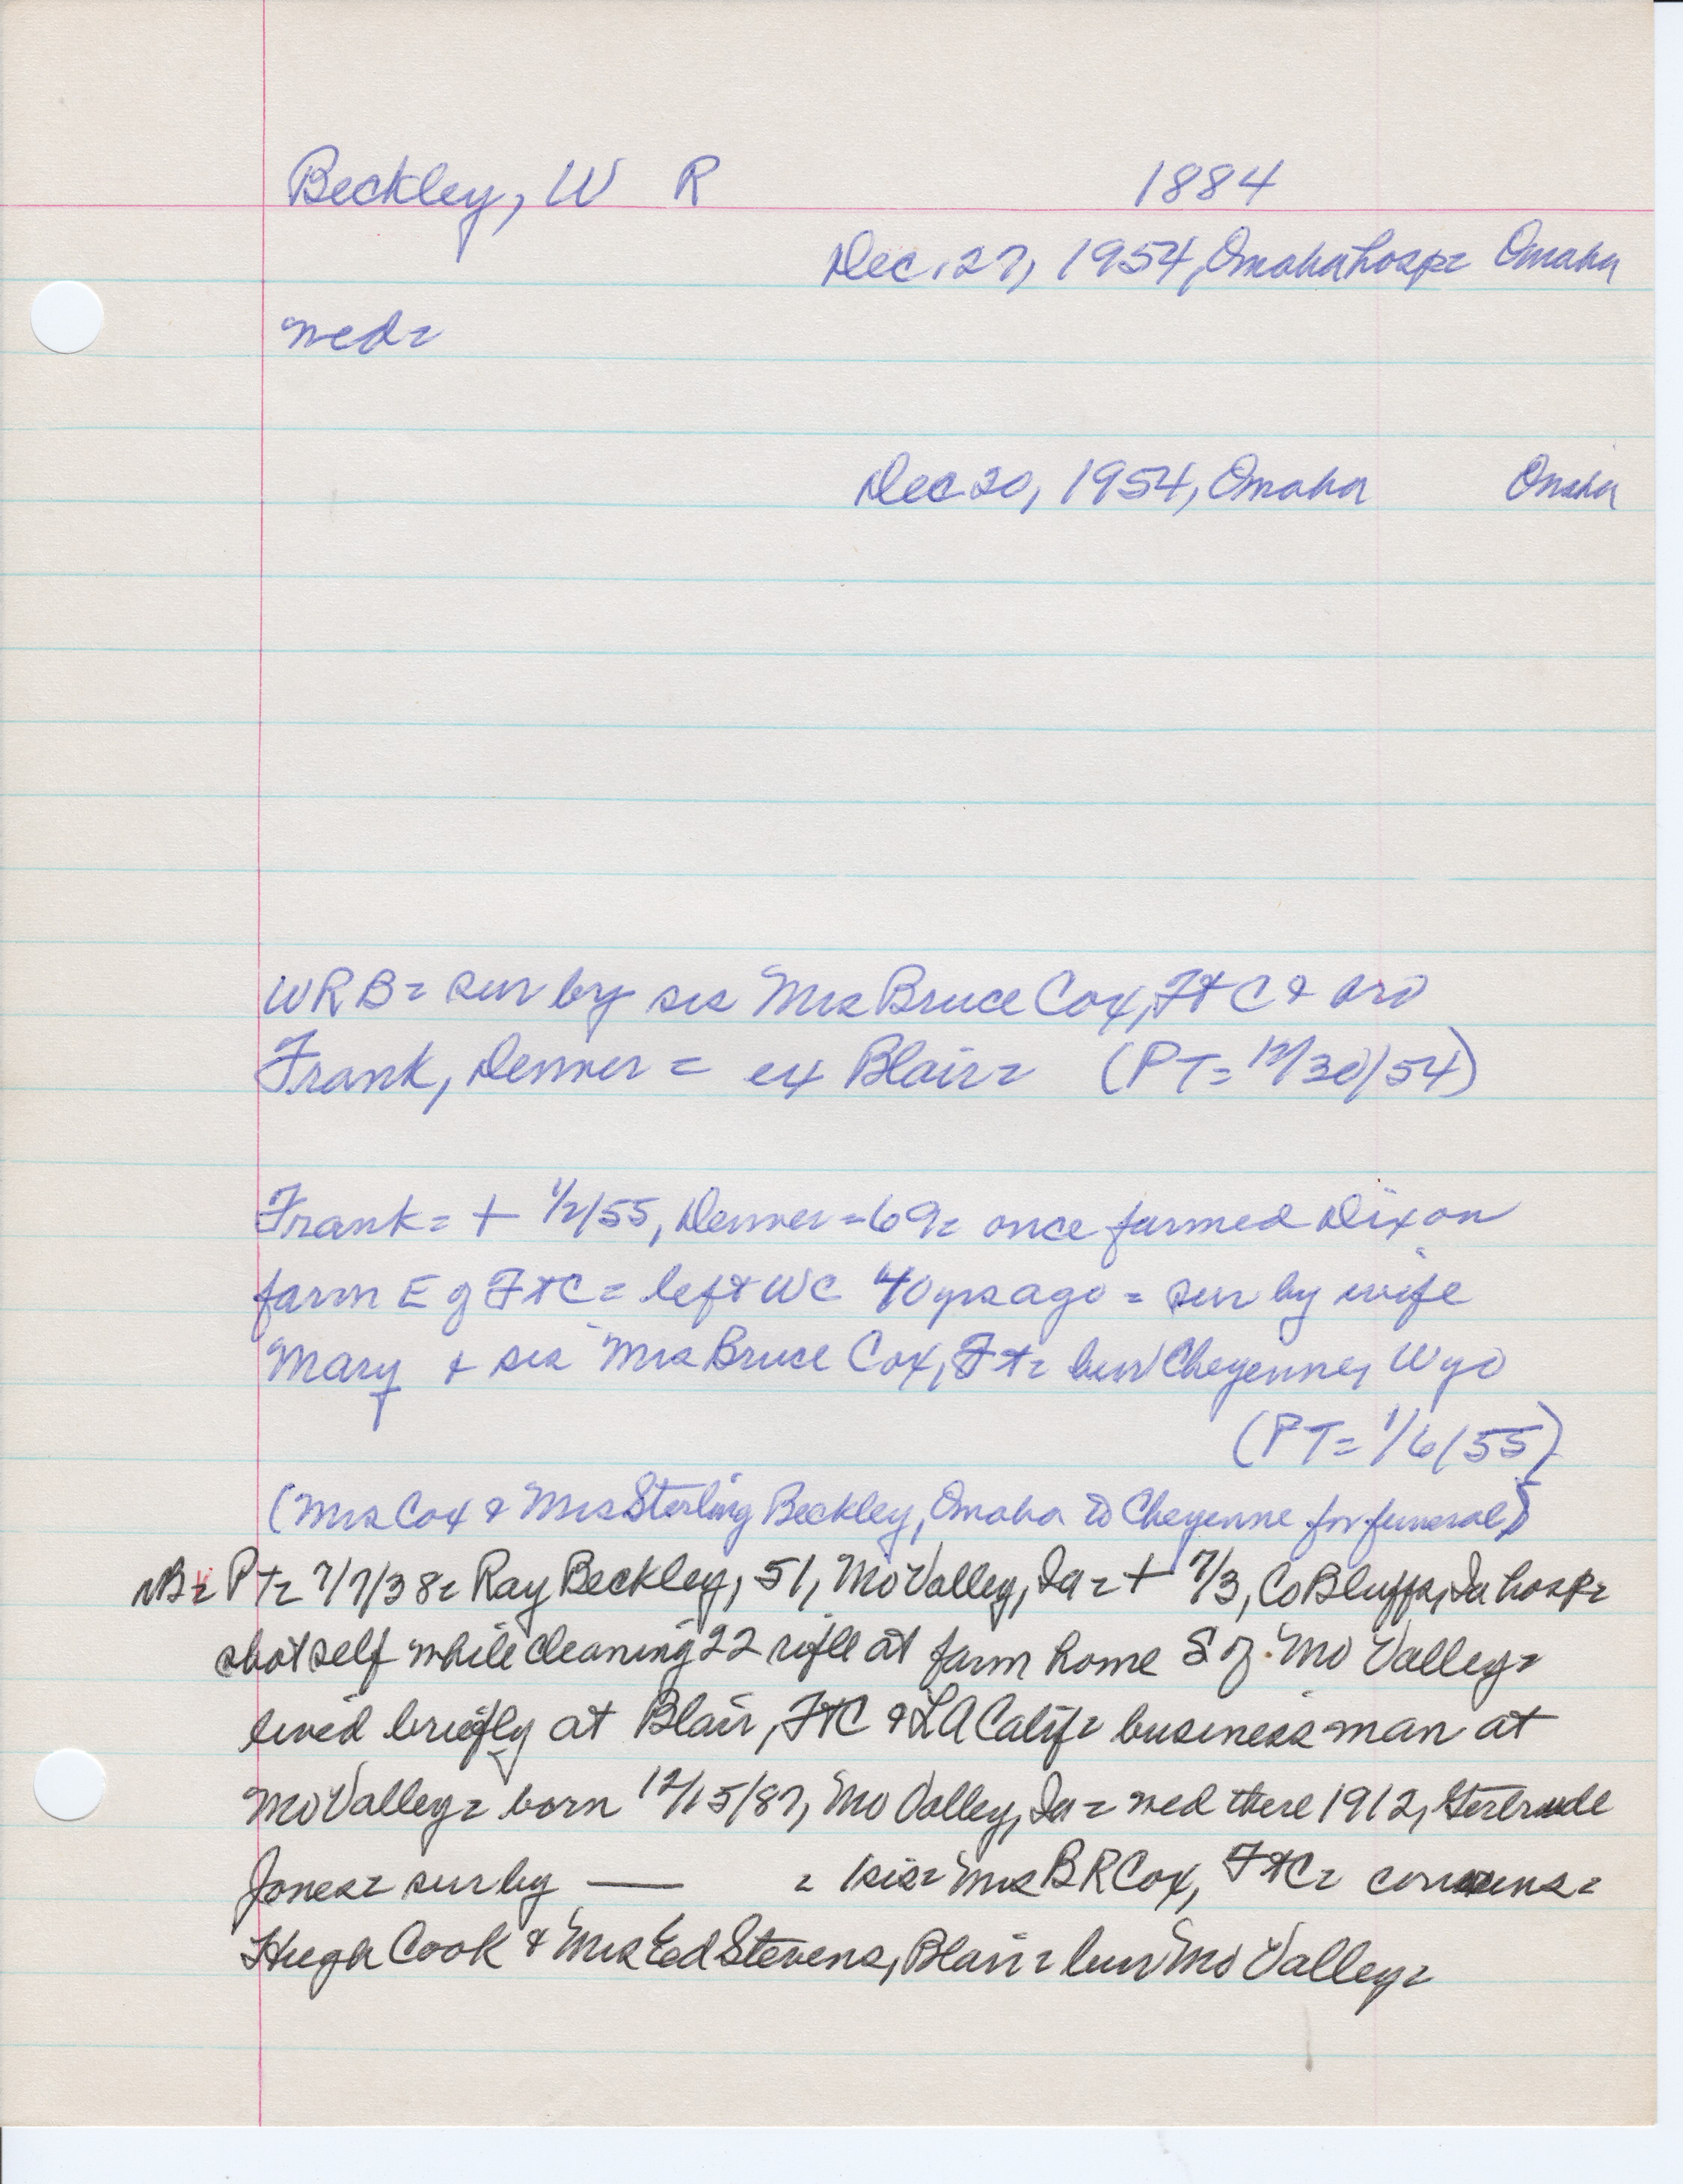 Beckley, W R 1884
Dec. 27, 1954, Omaha hosp= Omaha
wed=
Dec 20, 1954, Omaha Omaha
WRB= sur by sis Mrs Bruce Cox, Ft C & bro
Frank, Denver = ex Blair= (PT= 12/30/54)
Frank= + 1/2/55, Denver = 69= once farmed Dixon
farm E of Ft C = left WC 40 yrs ago = sur by wife
Mary & sis Mrs Bruce Cox, Ft= bur Cheyenne, Wyo
(PT= 1/6/55)
(Mrs Cox & Mrs Sterling Beckley, Omaha to Cheyenne for funeral)
NB= Pt= 7/7/38= Ray Beckley, 51, Mo Valley, Ia = + 7/3, Co Bluffs, Ia hosp=
shot self while cleaning 22 rifle at farm home S of Mo Valley=
lived briefly at Blair, Ft C & LA Calif= business man at
Mo Valley= born 12/15/87, Mo Valley, Ia = wed there 1912, Gertrude
Jones= sur by — = 1 sis= Mrs B R Cox, Ft C=
Hugh Cook & Mrs Ed Stevens, Blair= bur Mo Valley=